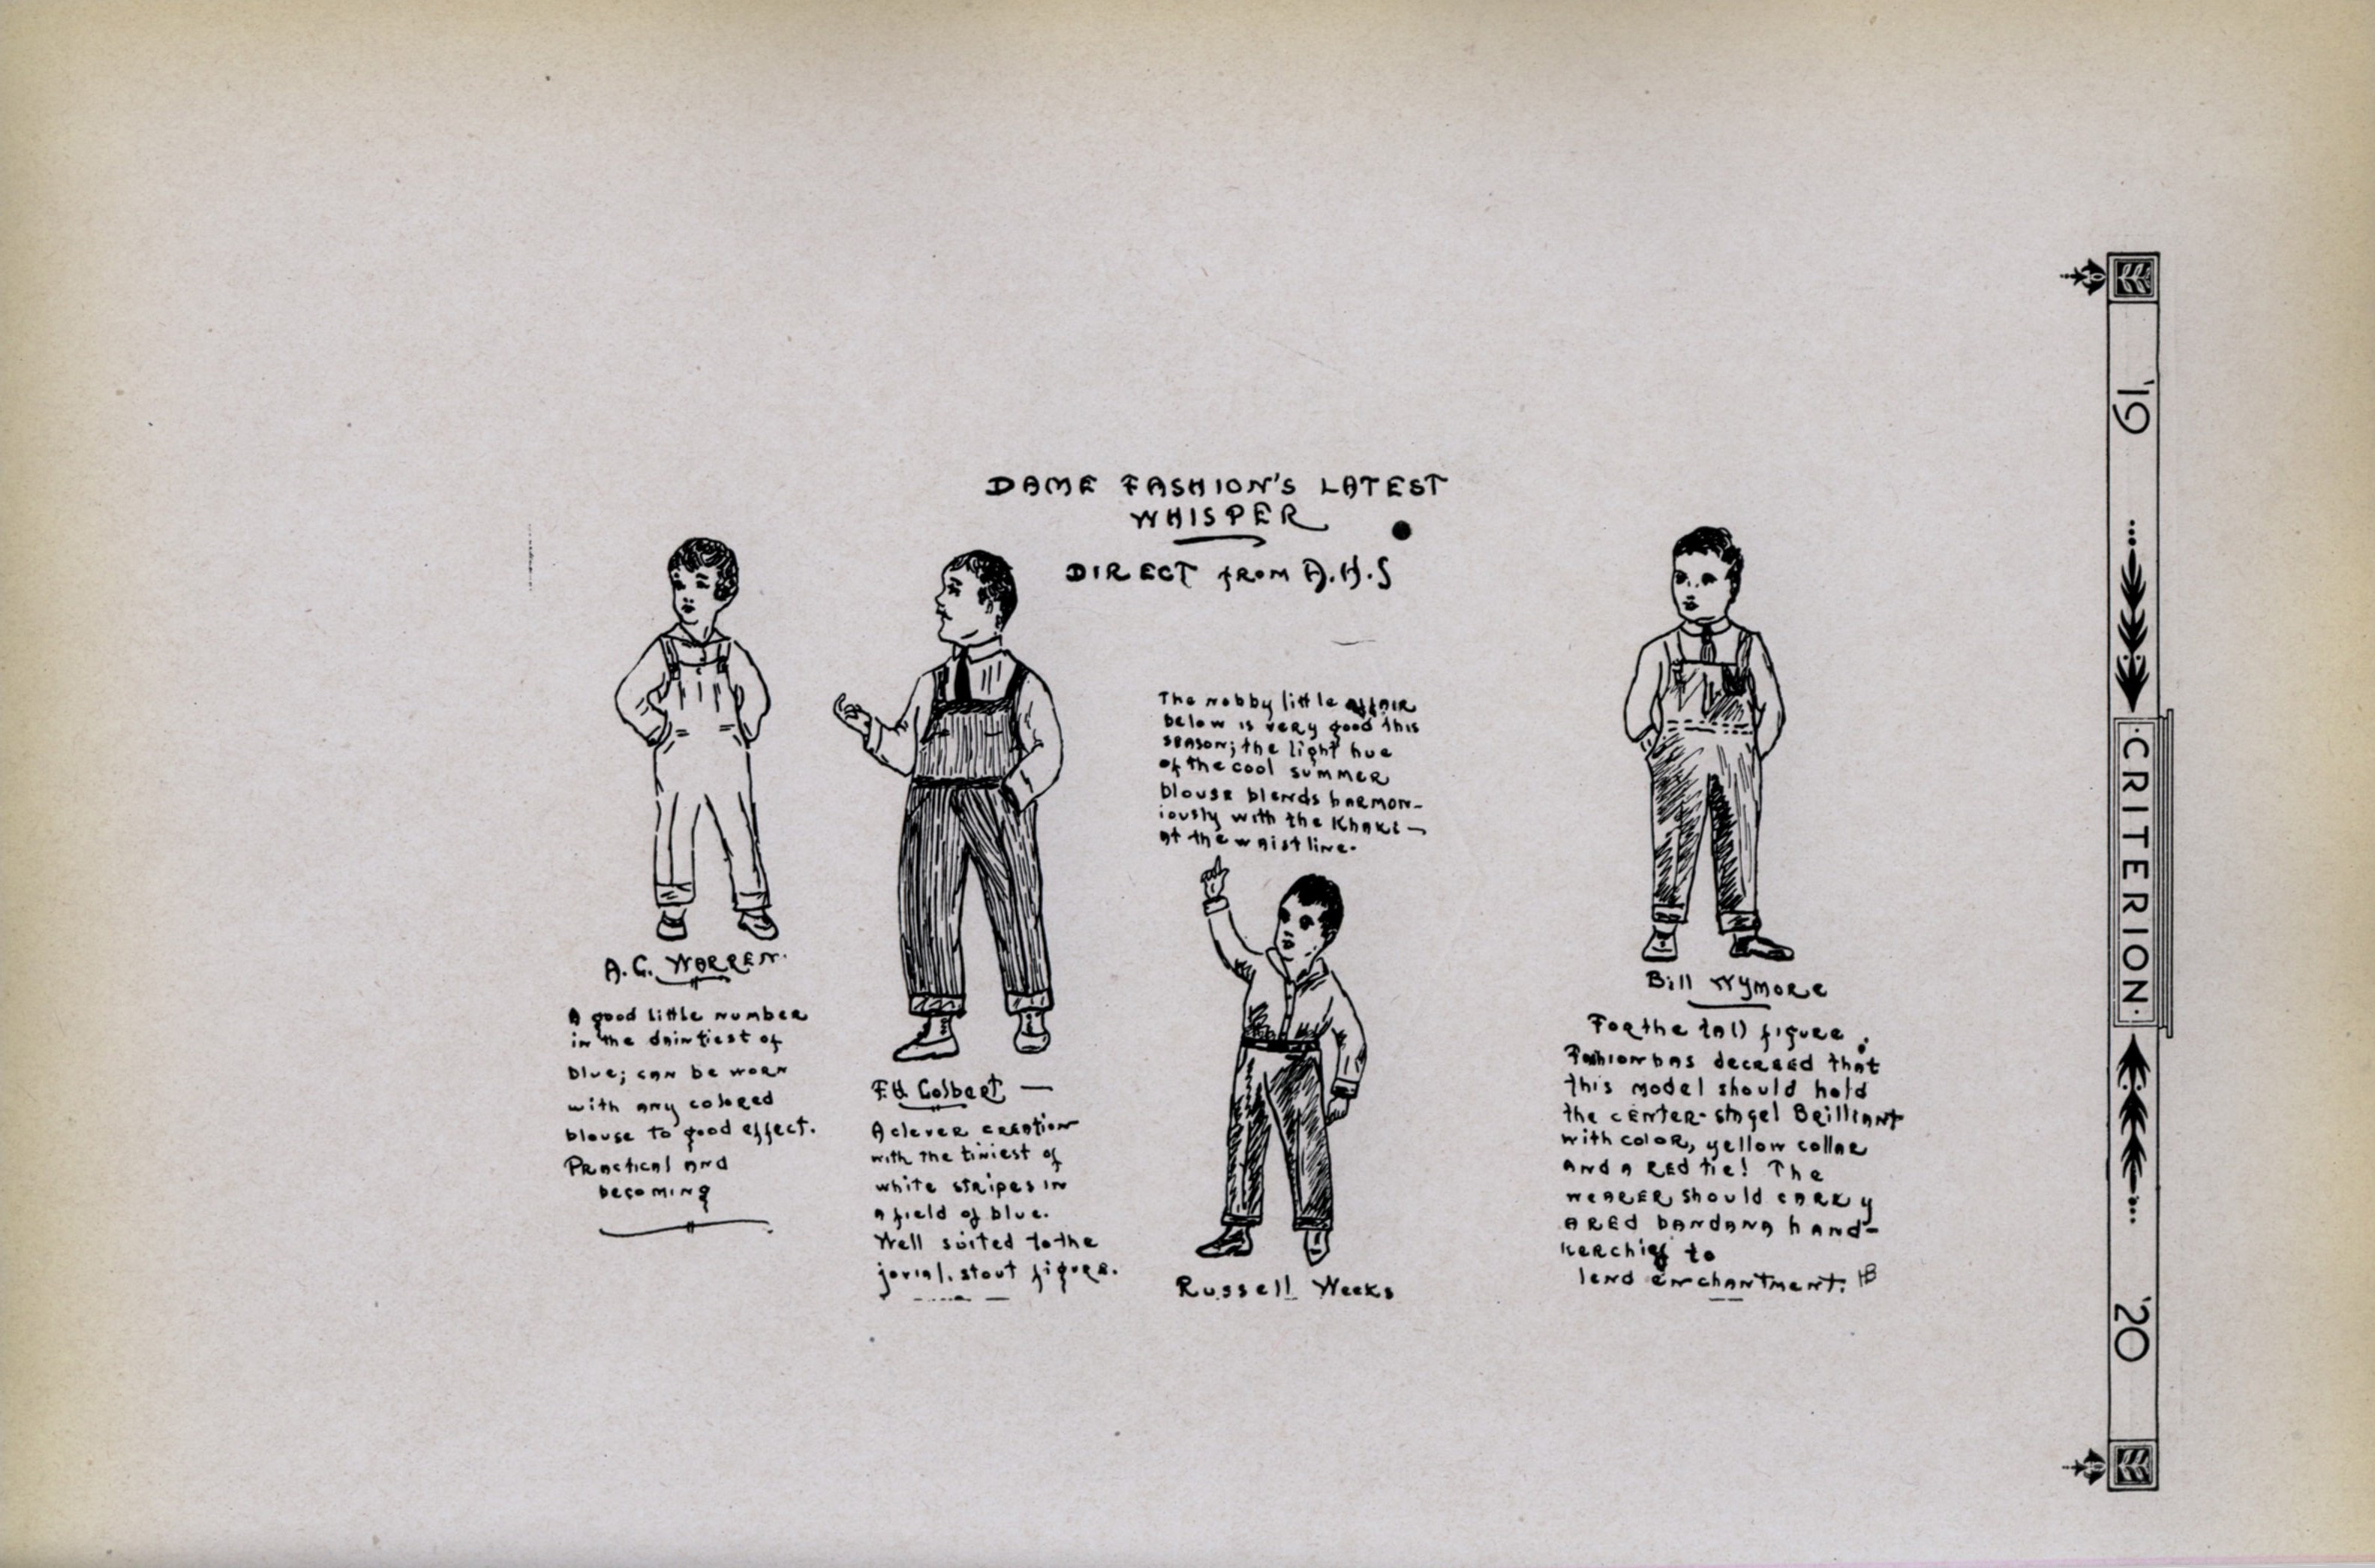 DAME FASHION'S LATEST
WHISPER
DIRECT FROM A.H.S
A.G. WARREN.
A good little number
in the daintiest of
blue; can be worn
with any colored
blouse to good effect.
Practical and
becoming
F.H. Colbert —
A clever creation
with the tiniest of
white stripes in
a field of blue.
Well suited to the
jovial, stout figure.
The nobby little affair
below is very good this
season; the light hue
of the cool summer
blouse blends harmon-
iously with the Khaki —
at the waistline.
Russell Weeks
Bill Wymore
For the tall figure
Fashion has decreed that
this model should hold
the center-stage! Brilliant
with color, yellow collar
and a RED tie! The
wearer should carry
a RED bandana hand-
kerchief to
lend enchantment. HB
'19
CRITERION
'20